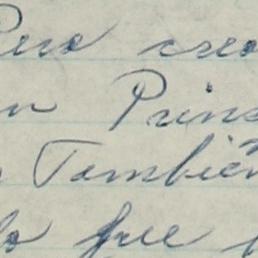 Pero creo
en Prins
También
lo fue